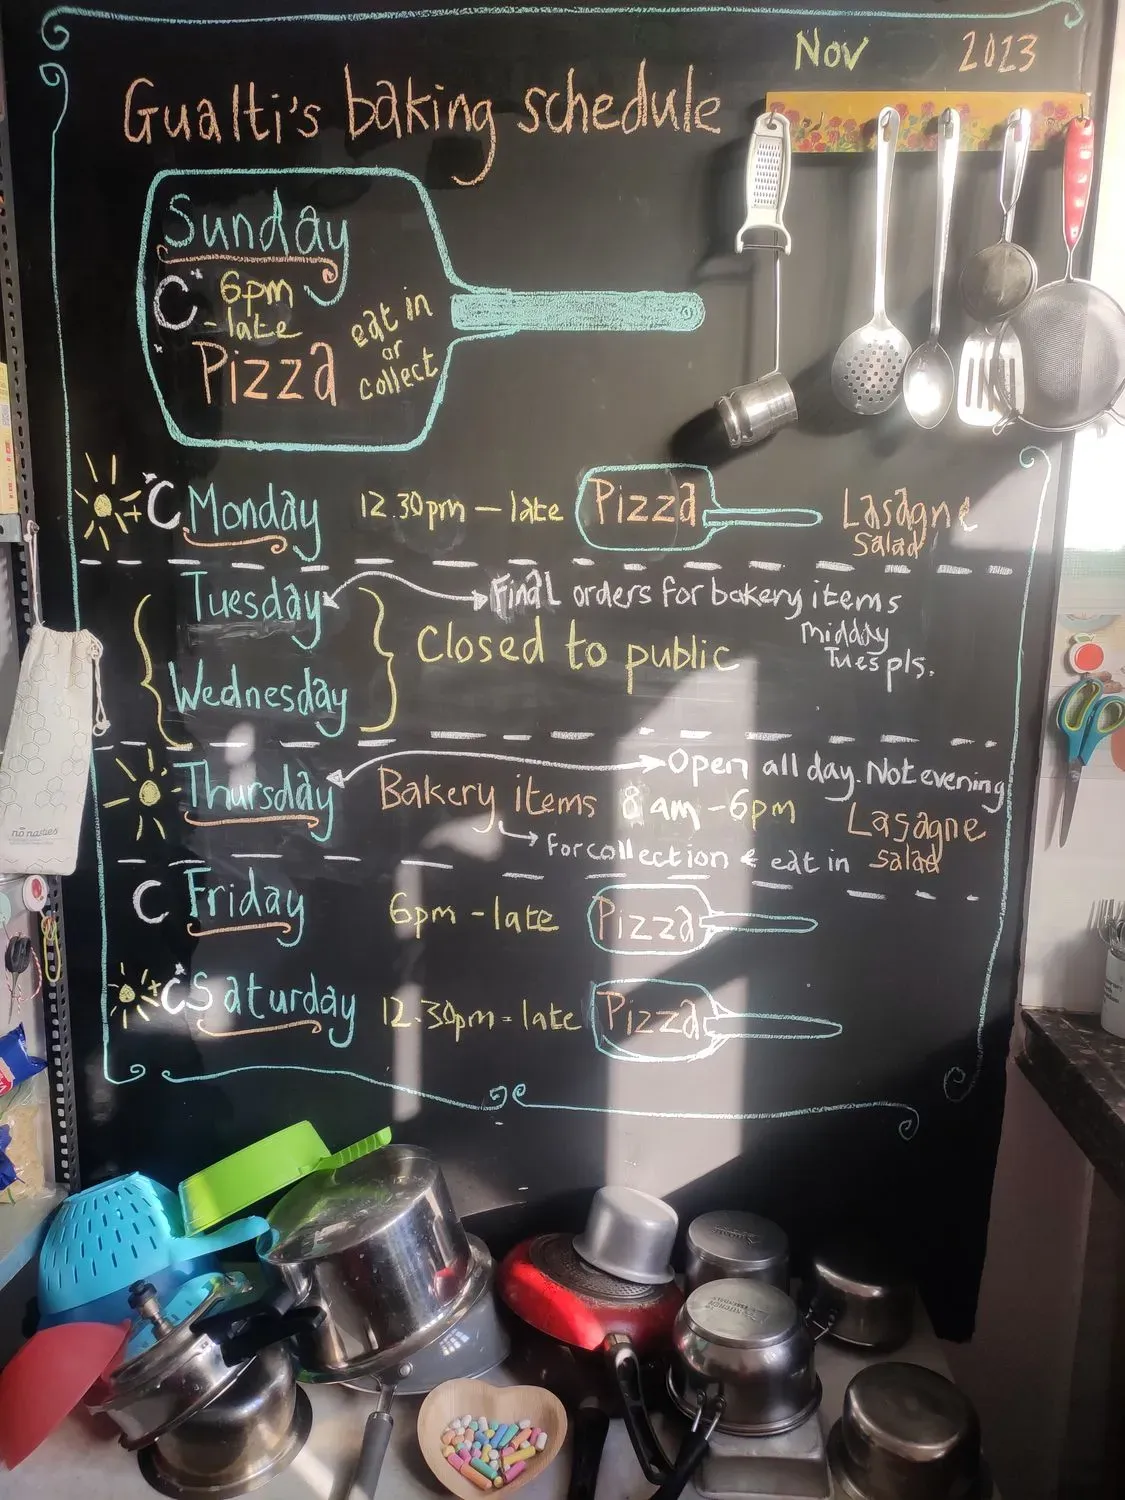 Nov 2023
Gualti's baking schedule
Sunday
6pm
-late
Pizza
eat in
or
collect
Monday 12.30pm — late Pizza Lasagne
Salad
Tuesday Final orders for bakery items
midday
Tues pls.
Closed to public
Wednesday
Thursday Open all day. Not evening
Bakery items 8am - 6pm Lasagne
For collection & eat in Salad
Friday 6pm - late Pizza
Saturday 12.30pm - late Pizza
no nasties